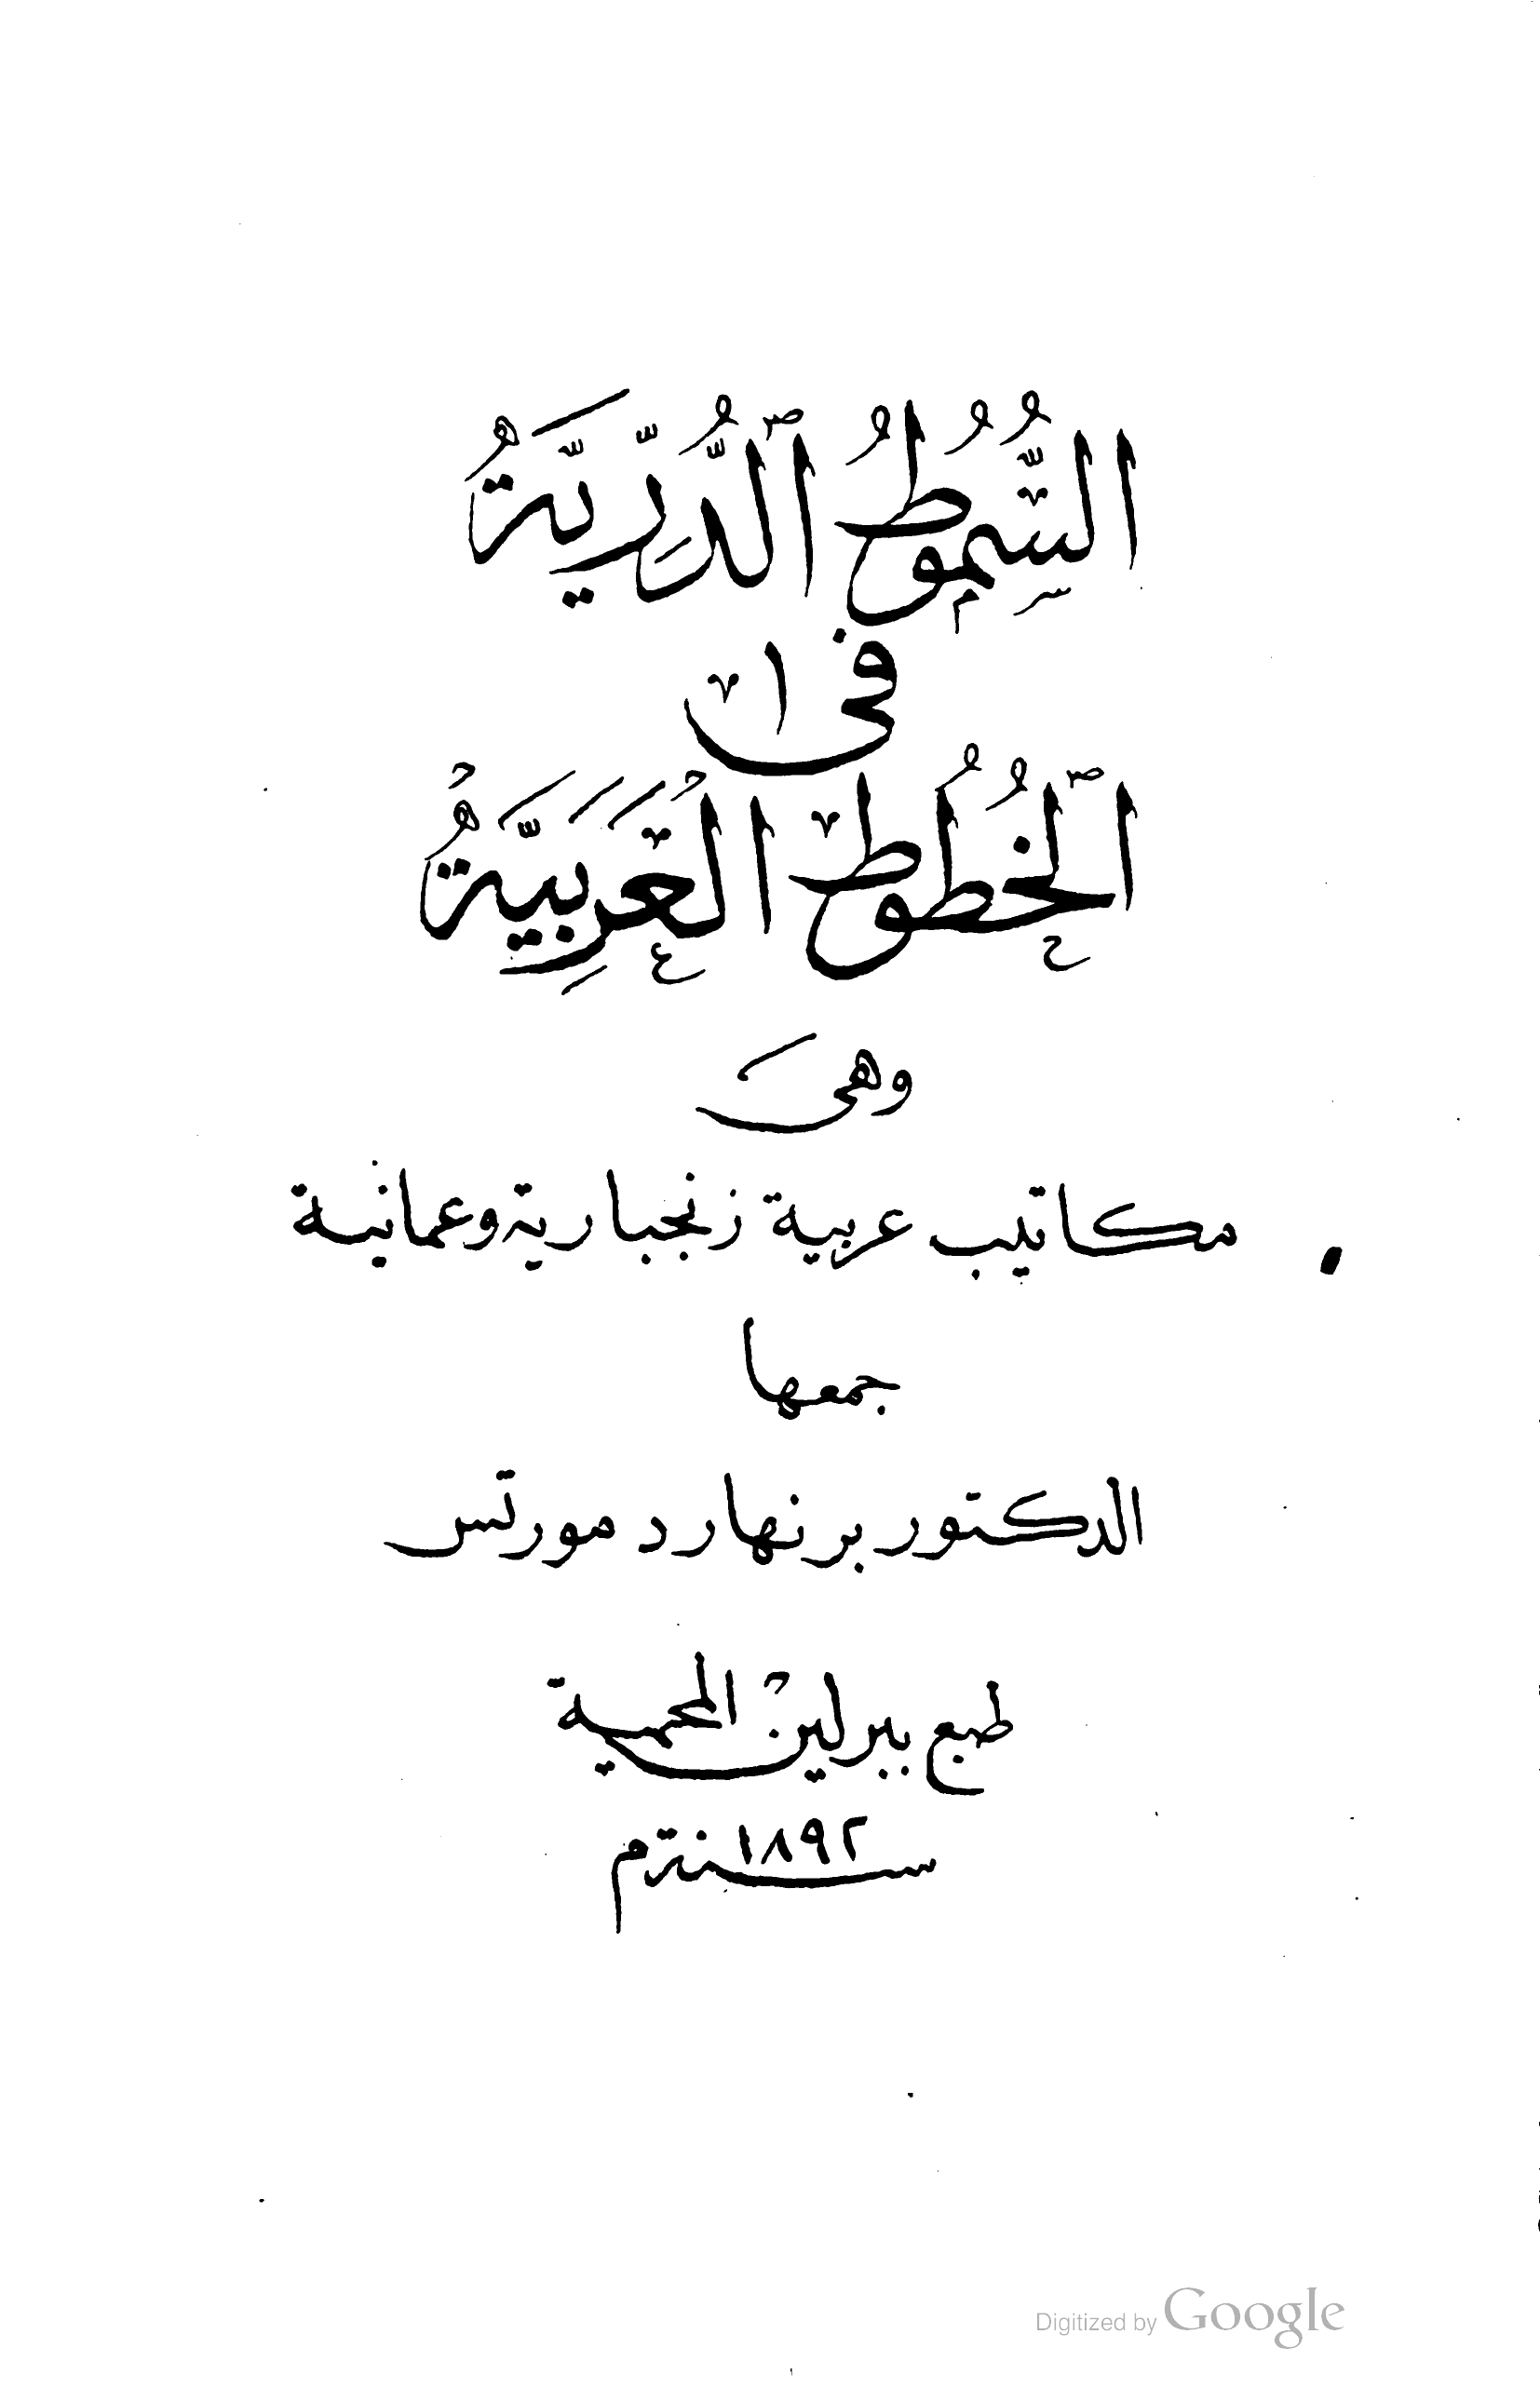 السُّمُوطُ ٱلدُّرِّيَّةُ
فى
ٱلخُطُوطِ العَرَبِيَّةُ
وهىَ
مكاتيب عربية زنجبارية وعمانية
جمعها
الدكتور برنهارد مورتس
طبع ببرلين المحمية
سنة ١٨٩٢ م
Digitized by Google